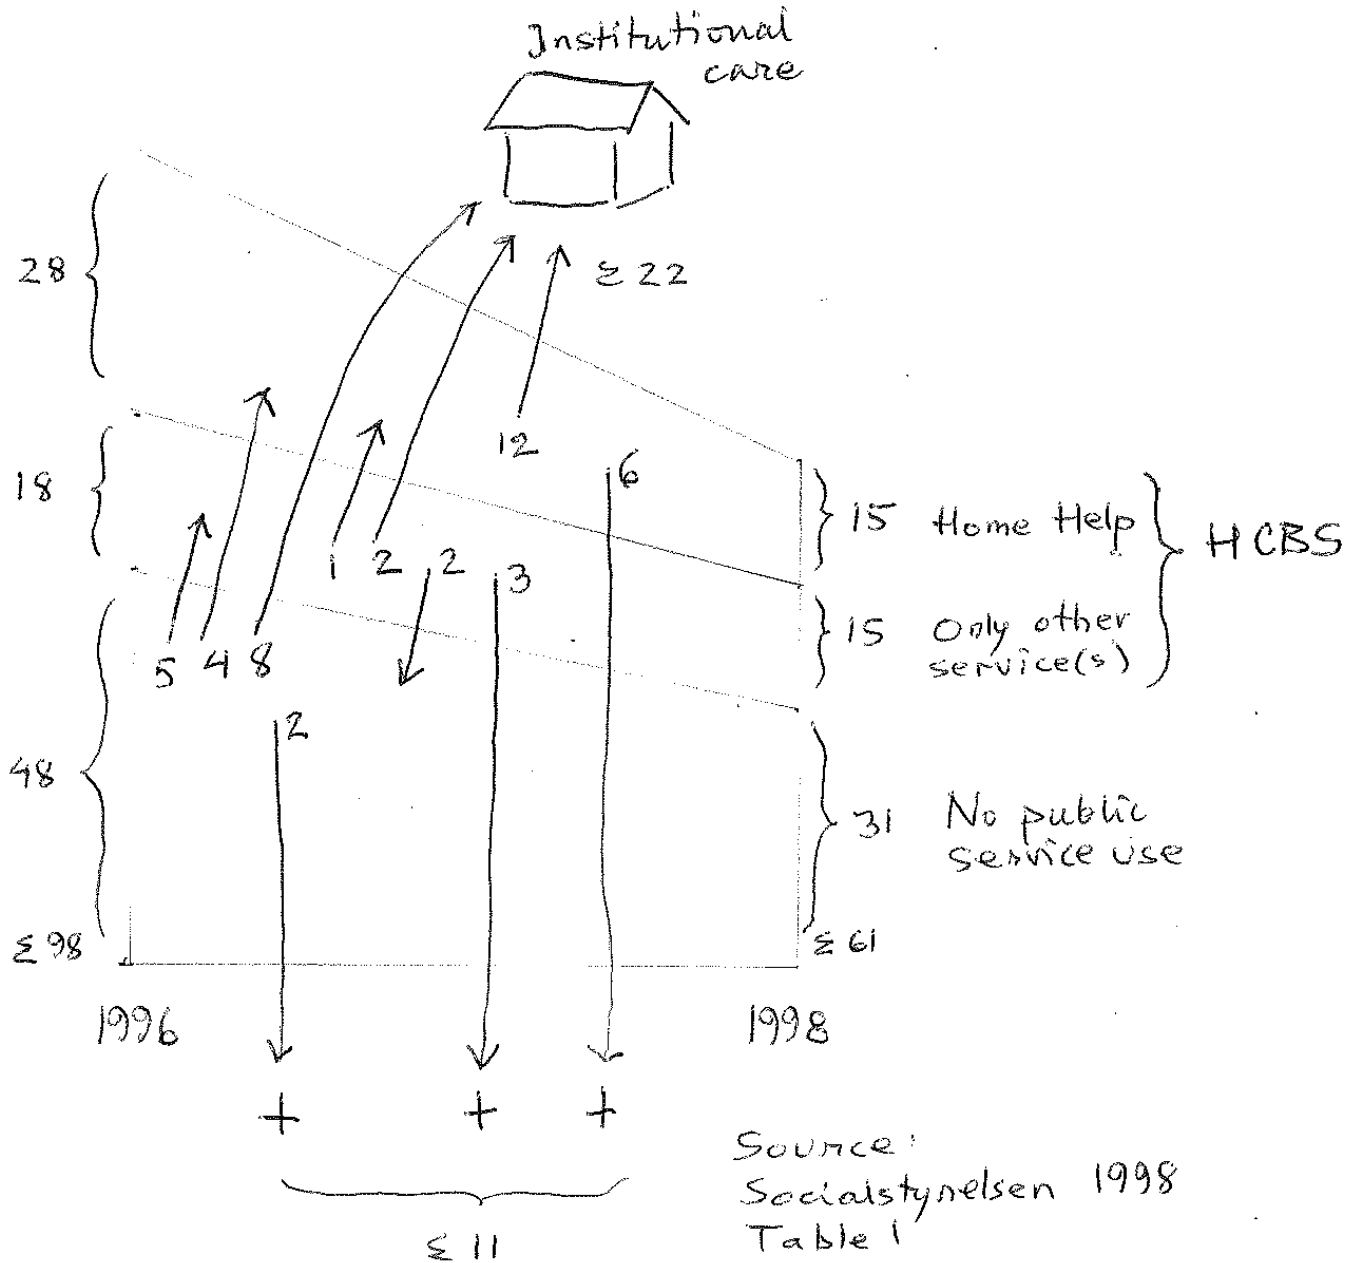 Institutional
care
28
Σ 22
12
6
18
15 Home Help
HCBS
1
2
2
3
15 Only other
service(s)
5
4
8
2
48
31 No public
service use
Σ 98
Σ 61
1996
1998
+
+
+
Source:
Socialstyrelsen 1998
Table 1
Σ 11